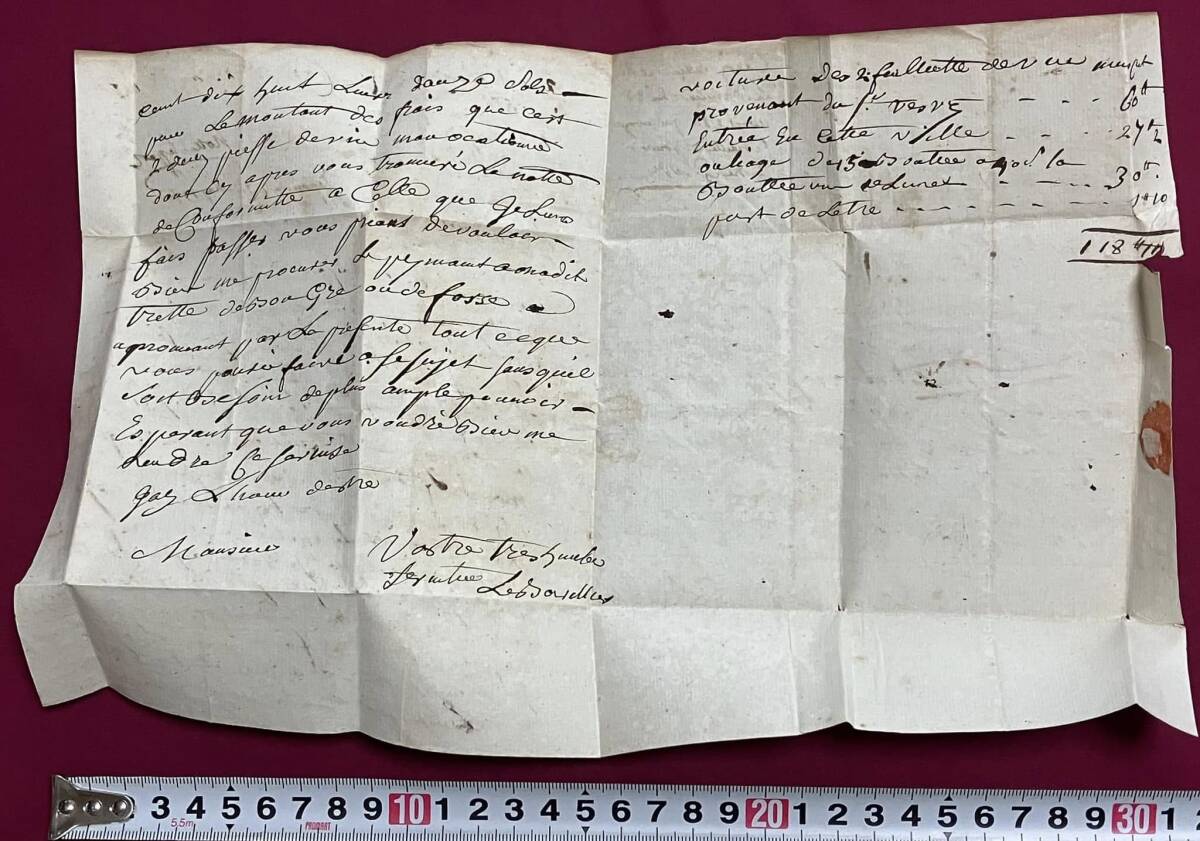 cent dix huit Livres douze sols
pour Le montant des frais que cest
2 deux piesse de vin mon ocationné
dont Cy apres vous trouveré La notte
de Conformitté a Celle que Je Luy
fais passer vous priant de vouloir
bien me procurer Le peymant
traitte de bon Gré ou de forse
aprouvant par La presente tout ceque
vous pouré faire a se sujet sans quil
soit besoin de plus ample pouvoir
Esperant que vous voudré bien me
Rendre Ce servisse
Jay L'honneur destre
Monsieur
Vostre tres humble
serviteur
voiture des 2 feuillette de vin
provenant du Sr. 60tt
Entrée En Cette Ville 27
ouliage de 15 Boutte a 40s. la
Boutteille
port de Letre 1tt10
118tt
3 4 5 6 7 8 9 10 1 2 3 4 5 6 7 8 9 20 1 2 3 4 5 6 7 8 9 30 1 2
5.5m
PROMART